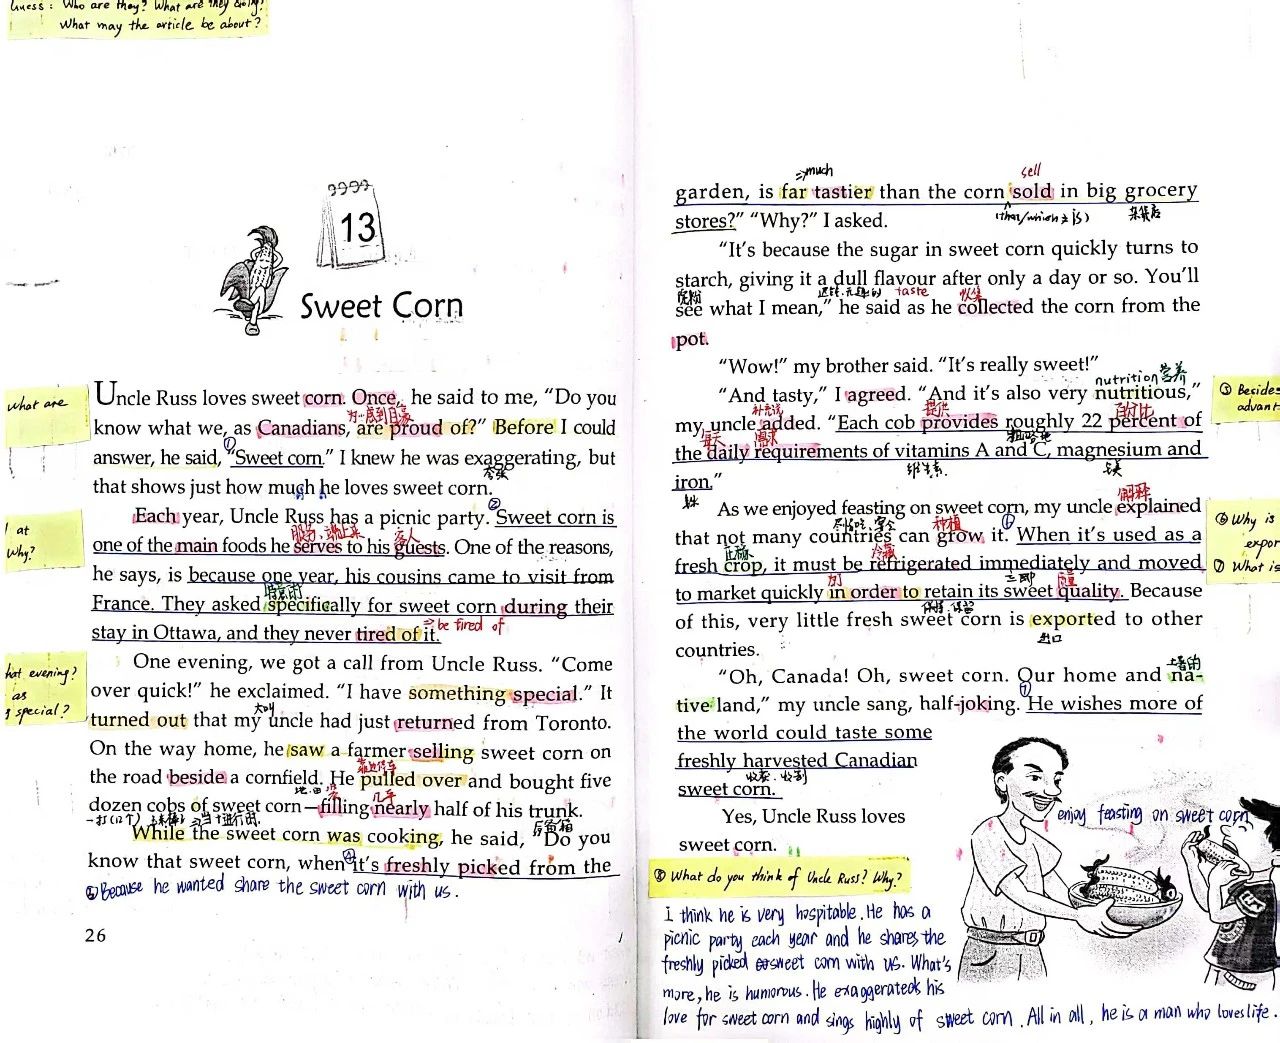 Guess: Who are they? What are they doing?
What may the article be about?
13
Sweet Corn
what are
Uncle Russ loves sweet corn. Once, he said to me, "Do you
know what we, as Canadians, are proud of?" Before I could
answer, he said, ①"Sweet corn." I knew he was exaggerating, but
夸张
that shows just how much he loves sweet corn.
at
Why?
Each year, Uncle Russ has a picnic party. ②Sweet corn is
客人
one of the main foods he serves to his guests. One of the reasons,
he says, is because one year, his cousins came to visit from
France. They asked specifically for sweet corn during their
stay in Ottawa, and they never tired of it. ⇒be tired of
hat evening?
as
special?
One evening, we got a call from Uncle Russ. "Come
over quick!" he exclaimed. "I have something special." It
大叫
turned out that my uncle had just returned from Toronto.
On the way home, he saw a farmer selling sweet corn on
靠边停车
the road beside a cornfield. He pulled over and bought five
几乎
dozen cobs of sweet corn—filling nearly half of his trunk.
一打(12个)
后备箱
While the sweet corn was cooking, he said, "Do you
know that sweet corn, when ④it's freshly picked from the
Because he wanted share the sweet corn with us.
26
⇒much
sell
garden, is far tastier than the corn sold in big grocery
(that/which is)
杂货店
stores?" "Why?" I asked.
"It's because the sugar in sweet corn quickly turns to
starch, giving it a dull flavour after only a day or so. You'll
淀粉
taste
收集
see what I mean," he said as he collected the corn from the
pot.
"Wow!" my brother said. "It's really sweet!"
nutrition 营养
"And tasty," I agreed. "And it's also very nutritious,"
补充说
提供
百分比
my uncle added. "Each cob provides roughly 22 percent of
每天
需求
粗略地
the daily requirements of vitamins A and C, magnesium and
维生素
镁
iron."
⑤ Besides
advant
As we enjoyed feasting on sweet corn, my uncle explained
解释
种植
that not many countries can grow it. ⑥When it's used as a
庄稼
冷藏
fresh crop, it must be refrigerated immediately and moved
立即
质量
to market quickly in order to retain its sweet quality. Because
of this, very little fresh sweet corn is exported to other
出口
countries.
⑥ Why is
expor
⑦ What is
土著的
"Oh, Canada! Oh, sweet corn. Our home and na-
tive land," my uncle sang, half-joking. ⑦He wishes more of
the world could taste some
freshly harvested Canadian
收获、收割
sweet corn.
Yes, Uncle Russ loves
sweet corn.
enjoy feasting on sweet corn
⑧ What do you think of Uncle Russ? Why?
I think he is very hospitable. He has a
picnic party each year and he shares the
freshly picked sweet corn with us. What's
more, he is humorous. He exaggerates his
love for sweet corn and sings highly of sweet corn. All in all, he is a man who loves life.